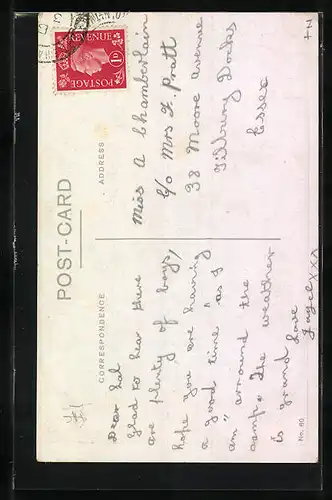 POST-CARD
CORRESPONDENCE
ADDRESS
POSTAGE
1D
REVENUE
Dear hal
Glad to hear there
are plenty of boys,
hope you are having
a good time as I
am arround the
camp. The weather
is grand love
XXX
Miss A Chamberlain
C/o Mrs F. Pratt
38 Moore Avenue
Tilbury Docks
Essex
No. 60